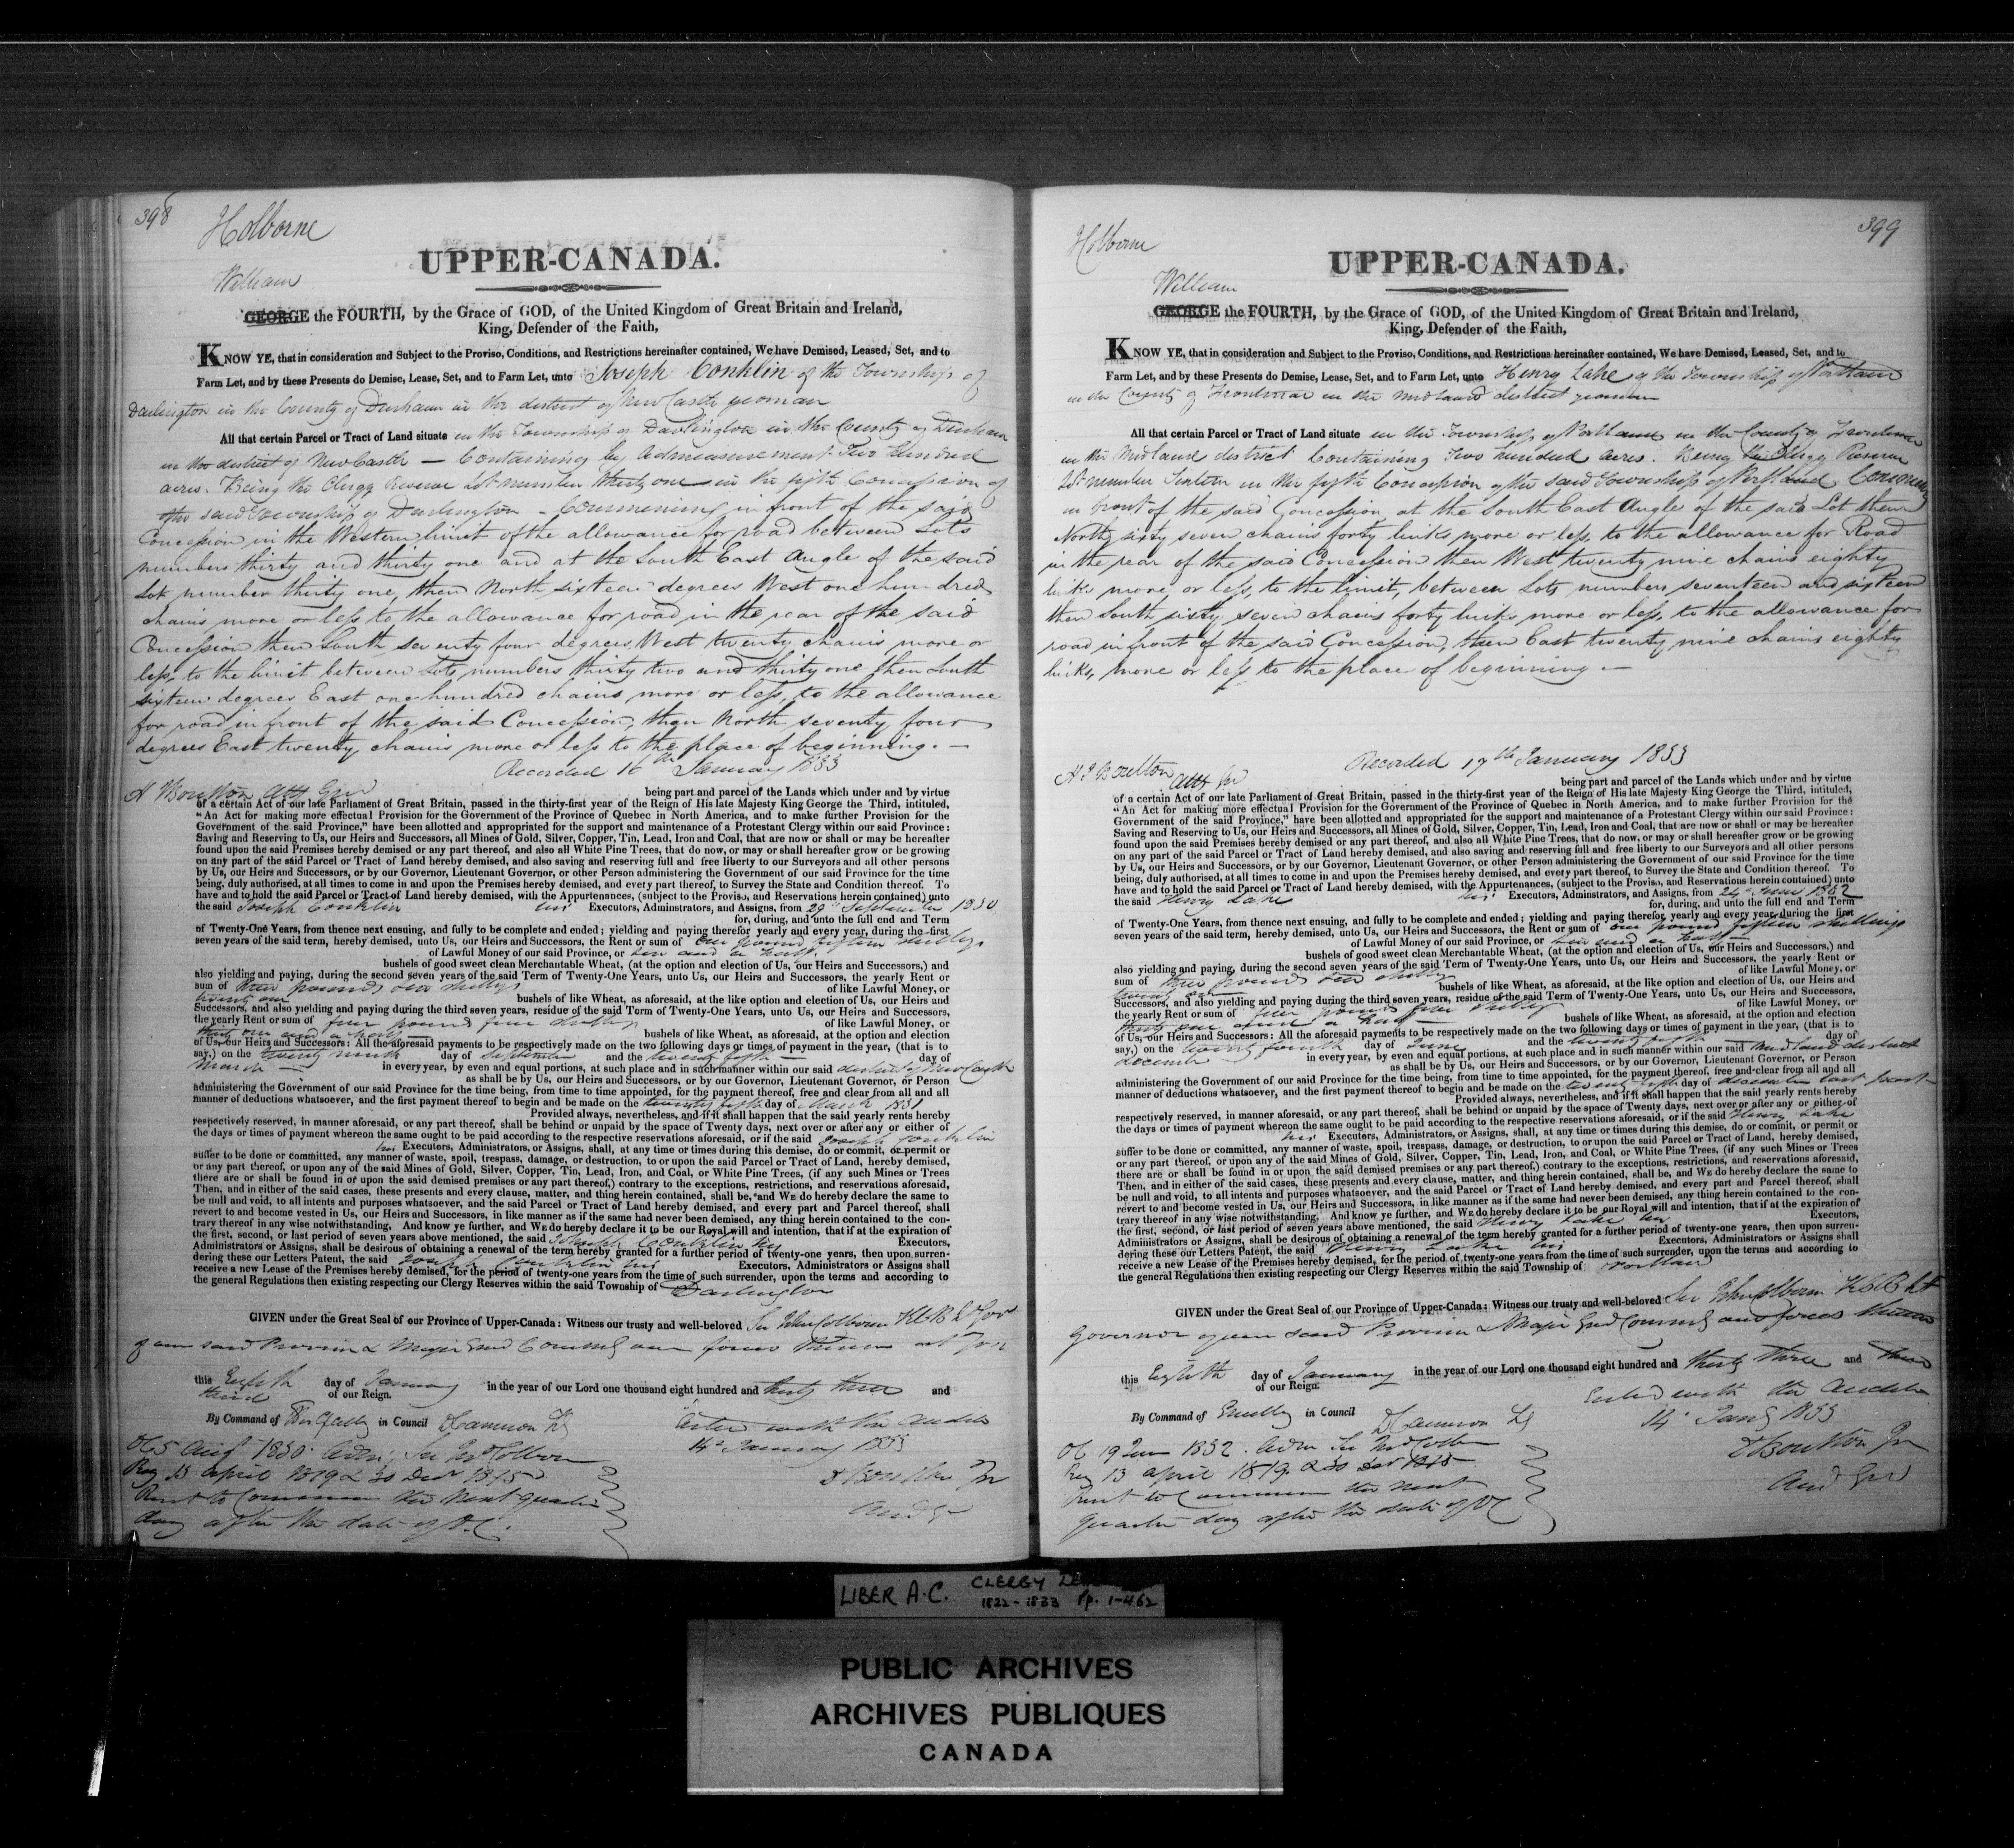 398
Holborne
UPPER-CANADA.
William
GEORGE the FOURTH, by the Grace of GOD, of the United Kingdom of Great Britain and Ireland,
King, Defender of the Faith,
KNOW YE, that in consideration and Subject to the Proviso, Conditions, and Restrictions hereinafter contained, We have Demised, Leased, Set, and to
Farm Let, and by these Presents do Demise, Lease, Set, and to Farm Let, unto Joseph Conklin of the Township of
Darlington in the County of Durham in the district of NewCastle yeoman
All that certain Parcel or Tract of Land situate in the Township of Darlington in the County of Durham
in the district of NewCastle — Containing by Admeasurement Two Hundred
acres. Being the Clergy Reserve Lot number thirty one in the fifth Concession of
the said Township of Darlington - Commencing in front of the said
Concession in the Western limit of the allowance for road between Lots
numbers thirty and thirty one and at the South East Angle of the said
Lot number thirty one, then North sixteen degrees West one hundred
chains more or less to the allowance for road in the rear of the said
Concession then South seventy four degrees West twenty chains more or
less, to the limit between Lots numbers thirty two and thirty one then South
sixteen degrees East one hundred chains more or less, to the allowance
for road in front of the said Concession, then North seventy four
degrees East twenty chains more or less to the place of beginning. —
Recorded 16th January 1833
H Boulton Atty Gen
being part and parcel of the Lands which under and by virtue
of a certain Act of our late Parliament of Great Britain, passed in the thirty-first year of the Reign of His late Majesty King George the Third, intituled,
"An Act for making more effectual Provision for the Government of the Province of Quebec in North America, and to make further Provision for the
Government of the said Province," have been allotted and appropriated for the support and maintenance of a Protestant Clergy within our said Province:
Saving and Reserving to Us, our Heirs and Successors, all Mines of Gold, Silver, Copper, Tin, Lead, Iron and Coal, that are now or shall or may be hereafter
found upon the said Premises hereby demised or any part thereof, and also all White Pine Trees, that do now, or may or shall hereafter grow or be growing
on any part of the said Parcel or Tract of Land hereby demised, and also saving and reserving full and free liberty to our Surveyors and all other persons
by Us, our Heirs and Successors, or by our Governor, Lieutenant Governor, or other Person administering the Government of our said Province for the time
being, duly authorised, at all times to come in and upon the Premises hereby demised, and every part thereof, to Survey the State and Condition thereof. To
have and to hold the said Parcel or Tract of Land hereby demised, with the Appurtenances, (subject to the Proviso, and Reservations herein contained) unto
the said Joseph Conklin his Executors, Adminstrators, and Assigns, from 29th September 1830
for, during, and unto the full end and Term
of Twenty-One Years, from thence next ensuing, and fully to be complete and ended; yielding and paying therefor yearly and every year, during the first
seven years of the said term, hereby demised, unto Us, our Heirs and Successors, the Rent or sum of one pound fifteen shillings
of Lawful Money of our said Province, or ten and a half
bushels of good sweet clean Merchantable Wheat, (at the option and election of Us, our Heirs and Successors,) and
also yielding and paying, during the second seven years of the said Term of Twenty-One Years, unto Us, our Heirs and Successors, the yearly Rent or
sum of three pounds ten shillings of like Lawful Money, or
twenty one bushels of like Wheat, as aforesaid, at the like option and election of Us, our Heirs and
Successors, and also yielding and paying during the third seven years, residue of the said Term of Twenty-One Years, unto Us, our Heirs and Successors,
the yearly Rent or sum of five pounds five shillings of like Lawful Money, or
thirty one and a half bushels of like Wheat, as aforesaid, at the option and election
of Us, our Heirs and Successors: All the aforesaid payments to be respectively made on the two following days or times of payment in the year, (that is to
say,) on the twenty ninth day of September and the twenty fifth — day of
March — in every year, by even and equal portions, at such place and in such manner within our said district of NewCastle
as shall be by Us, our Heirs and Successors, or by our Governor, Lieutenant Governor, or Person
administering the Government of our said Province for the time being, from time to time appointed, for the payment thereof, free and clear from all and all
manner of deductions whatsoever, and the first payment thereof to begin and be made on the twenty fifth day of March 1831
Provided always, nevertheless, and if it shall happen that the said yearly rents hereby
respectively reserved, in manner aforesaid, or any part thereof, shall be behind or unpaid by the space of Twenty days, next over or after any or either of
the days or times of payment whereon the same ought to be paid according to the respective reservations aforesaid, or if the said Joseph Conklin
his Executors, Administrators, or Assigns, shall, at any time or times during this demise, do or commit, or permit or
suffer to be done or committed, any manner of waste, spoil, trespass, damage, or destruction, to or upon the said Parcel or Tract of Land, hereby demised,
or any part thereof, or upon any of the said Mines of Gold, Silver, Copper, Tin, Lead, Iron, and Coal, or White Pine Trees, (if any such Mines or Trees
there are or shall be found in or upon the said demised premises or any part thereof,) contrary to the exceptions, restrictions, and reservations aforesaid,
Then, and in either of the said cases, these presents and every clause, matter, and thing herein contained, shall be, and WE do hereby declare the same to
be null and void, to all intents and purposes whatsoever, and the said Parcel or Tract of Land hereby demised, and every part and Parcel thereof, shall
revert to and become vested in Us, our Heirs and Successors, in like manner as if the same had never been demised, any thing herein contained to the con-
trary thereof in any wise notwithstanding. And know ye further, and WE do hereby declare it to be our Royal will and intention, that if at the expiration of
the first, second, or last period of seven years above mentioned, the said Joseph Conklin his Executors,
Administrators or Assigns, shall be desirous of obtaining a renewal of the term hereby granted for a further period of twenty-one years, then upon surren-
dering these our Letters Patent, the said Joseph Conklin his Executors, Administrators or Assigns shall
receive a new Lease of the Premises hereby demised, for the period of twenty-one years from the time of such surrender, upon the terms and according to
the general Regulations then existing respecting our Clergy Reserves within the said Township of Darlington
GIVEN under the Great Seal of our Province of Upper-Canada: Witness our trusty and well-beloved Sir John Colborne KCB Lt Govr
of our said Province & Major Genl Commdg our forces therein at York
this Eighth day of January in the year of our Lord one thousand eight hundred and thirty three and
third of our Reign.
By Command of His Excelly in Council D Cameron Secy
Enterd with the Auditor
14th January 1833
OC 5 Augt 1830. Admn, Sir Jno Colborne
Reg 13 April 1819 & 30 Decr 1815
Rent to Commence the Next quarter
day after the date of O.C.
399
Holborne
UPPER-CANADA.
William
GEORGE the FOURTH, by the Grace of GOD, of the United Kingdom of Great Britain and Ireland,
King, Defender of the Faith,
KNOW YE, that in consideration and Subject to the Proviso, Conditions, and Restrictions hereinafter contained, We have Demised, Leased, Set, and to
Farm Let, and by these Presents do Demise, Lease, Set, and to Farm Let, unto Henry Lake of the Township of Portland
in the County of Frontenac in the midland district yeoman
All that certain Parcel or Tract of Land situate in the Township of Portland in the County of Frontenac
in the Midland district Containing Two hundred acres. Being the Clergy Reserve
Lot number Sixteen in the fifth Concession of the said Township of Portland Commencing
in front of the said Concession at the South East Angle of the said Lot then
North sixty seven chains forty links more or less, to the allowance for Road
in the rear of the said Concession then West twenty nine chains eighty
links more or less, to the limit, between Lots numbers seventeen and sixteen
then South sixty seven chains forty links more or less, to the allowance for
road in front of the said Concession, then East twenty nine chains eighty
links, more or less to the place of beginning. —
Recorded 17th January 1833
H J Boulton
Atty Gen
being part and parcel of the Lands which under and by virtue
of a certain Act of our late Parliament of Great Britain, passed in the thirty-first year of the Reign of His late Majesty King George the Third, intituled,
"An Act for making more effectual Provision for the Government of the Province of Quebec in North America, and to make further Provision for the
Government of the said Province," have been allotted and appropriated for the support and maintenance of a Protestant Clergy within our said Province:
Saving and Reserving to Us, our Heirs and Successors, all Mines of Gold, Silver, Copper, Tin, Lead, Iron and Coal, that are now or shall or may be hereafter
found upon the said Premises hereby demised or any part thereof, and also all White Pine Trees, that do now, or may or shall hereafter grow or be growing
on any part of the said Parcel or Tract of Land hereby demised, and also saving and reserving full and free liberty to our Surveyors and all other persons
by Us, our Heirs and Successors, or by our Governor, Lieutenant Governor, or other Person administering the Government of our said Province for the time
being, duly authorised, at all times to come in and upon the Premises hereby demised, and every part thereof, to Survey the State and Condition thereof. To
have and to hold the said Parcel or Tract of Land hereby demised, with the Appurtenances, (subject to the Proviso, and Reservations herein contained) unto
the said Henry Lake his Executors, Adminstrators, and Assigns, from 24th June 1832
for, during, and unto the full end and Term
of Twenty-One Years, from thence next ensuing, and fully to be complete and ended; yielding and paying therefor, yearly and every year, during the first
seven years of the said term, hereby demised, unto Us, our Heirs and Successors, the Rent or sum of one pound fifteen shillings
of Lawful Money of our said Province, or ten and a half
bushels of good sweet clean Merchantable Wheat, (at the option and election of Us, our Heirs and Successors,) and
also yielding and paying, during the second seven years of the said Term of Twenty-One Years, unto Us, our Heirs and Successors, the yearly Rent or
sum of three pounds ten shillings of like Lawful Money, or
twenty one bushels of like Wheat, as aforesaid, at the like option and election of Us, our Heirs and
Successors, and also yielding and paying during the third seven years, residue of the said Term of Twenty-One Years, unto Us, our Heirs and Successors,
the yearly Rent or sum of five pounds five shillings of like Lawful Money, or
thirty one and a half bushels of like Wheat, as aforesaid, at the option and election
of Us, our Heirs and Successors: All the aforesaid payments to be respectively made on the two following days or times of payment in the year, (that is to
say,) on the twenty fourth day of June and the twenty fifth — day of
December in every year, by even and equal portions, at such place and in such manner within our said Midland district
as shall be by Us, our Heirs and Successors, or by our Governor, Lieutenant Governor, or Person
administering the Government of our said Province for the time being, from time to time appointed, for the payment thereof, free and clear from all and all
manner of deductions whatsoever, and the first payment thereof to begin and be made on the twenty fifth day of december last past
Provided always, nevertheless, and if it shall happen that the said yearly rents hereby
respectively reserved, in manner aforesaid, or any part thereof, shall be behind or unpaid by the space of Twenty days, next over or after any or either of
the days or times of payment whereon the same ought to be paid according to the respective reservations aforesaid, or if the said Henry Lake
his Executors, Administrators, or Assigns, shall, at any time or times during this demise, do or commit, or permit or
suffer to be done or committed, any manner of waste, spoil, trespass, damage, or destruction, to or upon the said Parcel or Tract of Land, hereby demised,
or any part thereof, or upon any of the said Mines of Gold, Silver, Copper, Tin, Lead, Iron, and Coal, or White Pine Trees, (if any such Mines or Trees
there are or shall be found in or upon the said demised premises or any part thereof,) contrary to the exceptions, restrictions, and reservations aforesaid,
Then, and in either of the said cases, these presents and every clause, matter, and thing herein contained, shall be, and WE do hereby declare the same to
be null and void, to all intents and purposes whatsoever, and the said Parcel or Tract of Land hereby demised, and every part and Parcel thereof, shall
revert to and become vested in Us, our Heirs and Successors, in like manner as if the same had never been demised, any thing herein contained to the con-
trary thereof in any wise notwithstanding. And know ye further, and WE do hereby declare it to be our Royal will and intention, that if at the expiration of
the first, second, or last period of seven years above mentioned, the said Henry Lake his Executors,
Administrators or Assigns, shall be desirous of obtaining a renewal of the term hereby granted for a further period of twenty-one years, then upon surren-
dering these our Letters Patent, the said Henry Lake his Executors, Administrators or Assigns shall
receive a new Lease of the Premises hereby demised, for the period of twenty-one years from the time of such surrender, upon the terms and according to
the general Regulations then existing respecting our Clergy Reserves within the said Township of Portland
GIVEN under the Great Seal of our Province of Upper-Canada: Witness our trusty and well-beloved Sir John Colborne KCB Lt
Governor of our said Province & Major Genl Commdg our forces therein
this Eighth day of January in the year of our Lord one thousand eight hundred and thirty three and third
of our Reign.
By Command of in Council D Cameron Secy
Enterd with the Auditor
14 Jany 1833
OC 19 June 1832. Admn Sir Jno Colborne
Reg 13 April 1819. & 30 Decr 1815
Rent to Commence the next
quarter day after the date of OC
LIBER A.C. CLERGY
1822-1833 Pp. 1-462
PUBLIC ARCHIVES
ARCHIVES PUBLIQUES
CANADA